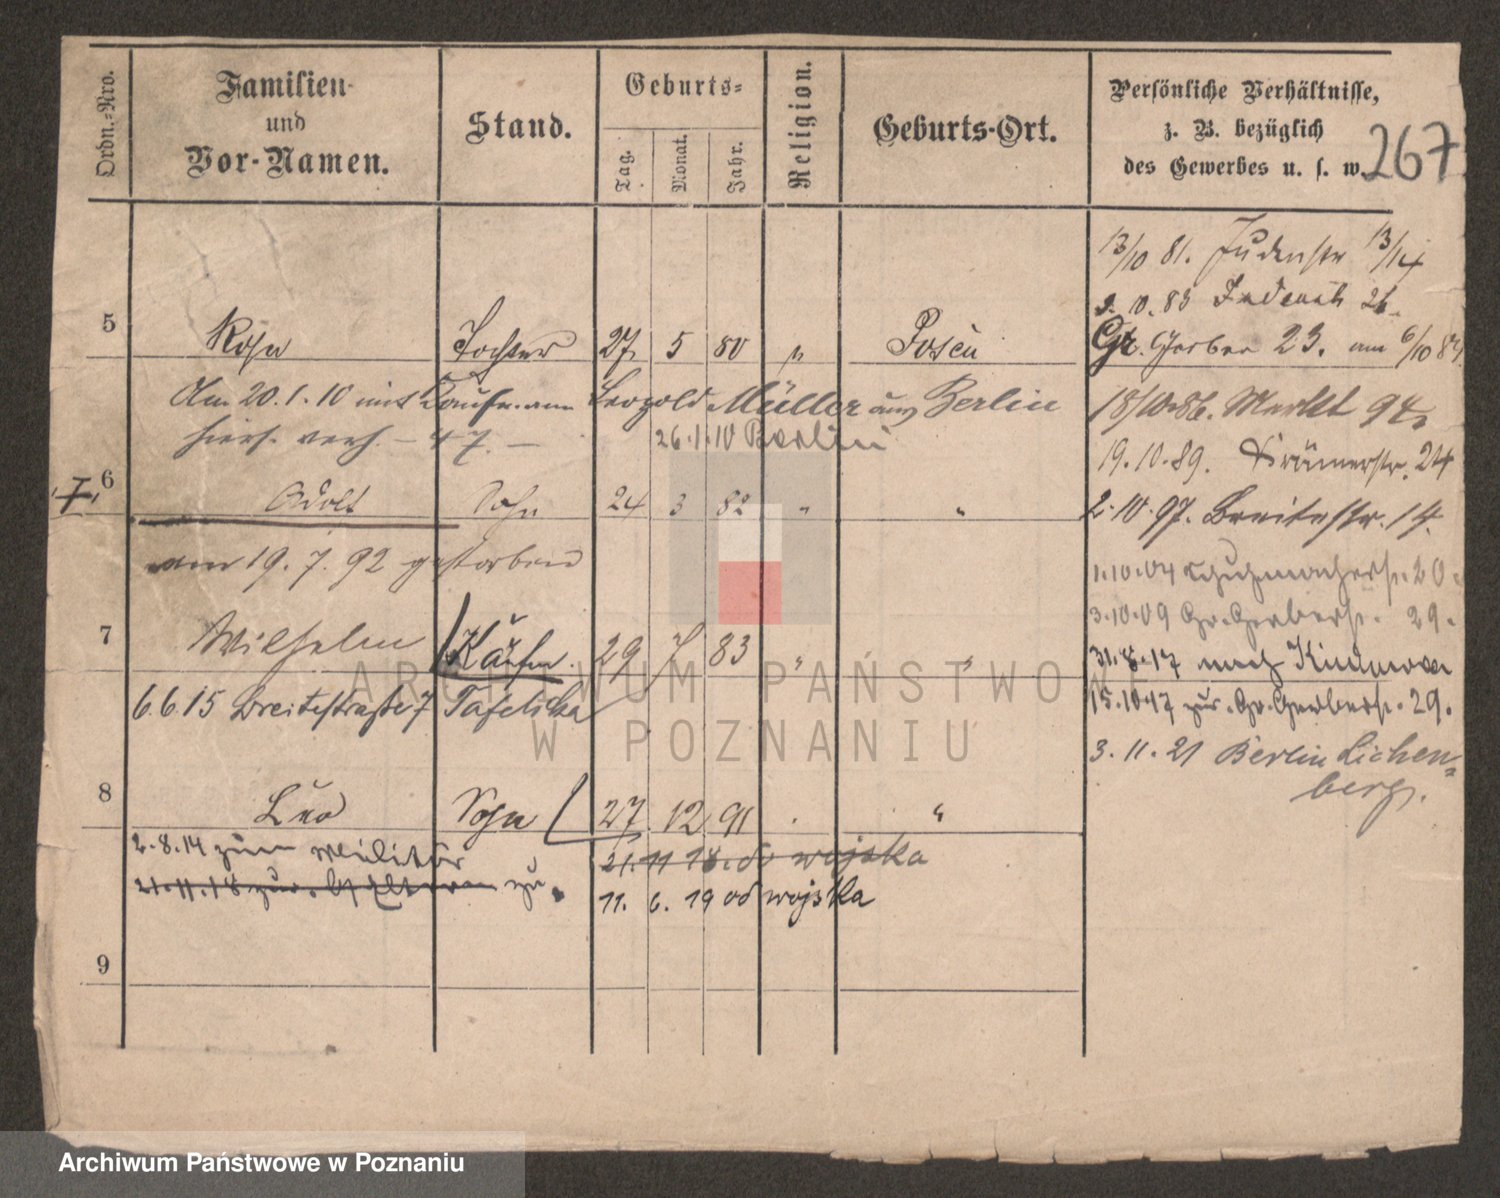 Ordn.-Nro.
Familien-
und
Vor-Namen.
Stand.
Geburts-
Tag.
Monat.
Jahr.
Religion.
Geburts-Ort.
Persönliche Verhältnisse,
z. B. bezüglich
des Gewerbes u. s. w.
267
13/10 81. Judenstr 13/14
3.10.83 26.
Gr. Gerber 23. am 6/10 84
5 Rosa Tochter 27 5 80 " Posen
Am 20.1.10 mit Kaufmann Leopold Müller aus Berlin
hiers. verh. - 47. -
26.1.10 Berlin
18/10.86. Markt 94
19.10.89. Krämerstr. 24
6 Adolf Sohn 24 3 82 " "
2.10.97. Breitestr. 14.
am 19.7.92 gestorben
1.10.04 Schuhmacherstr. 20
3.10.09 Gr. Gerberstr. 29.
7 Wilhelm Kaufm. 29 7 83 " "
31.8.17 nach
6.6.15 Breitestraße 7
15.10.17 zur. Gr. Gerberstr. 29.
3.11.21 Berlin Lichten-
berg.
8 Leo Sohn 27 12 91 . "
2.8.14 zum Militär
21.11.18 zur. zu.
21.11 18. do wojska
11. 6. 19 od wojska
9
ARCHIWUM PAŃSTWOWE
W POZNANIU
Archiwum Państwowe w Poznaniu